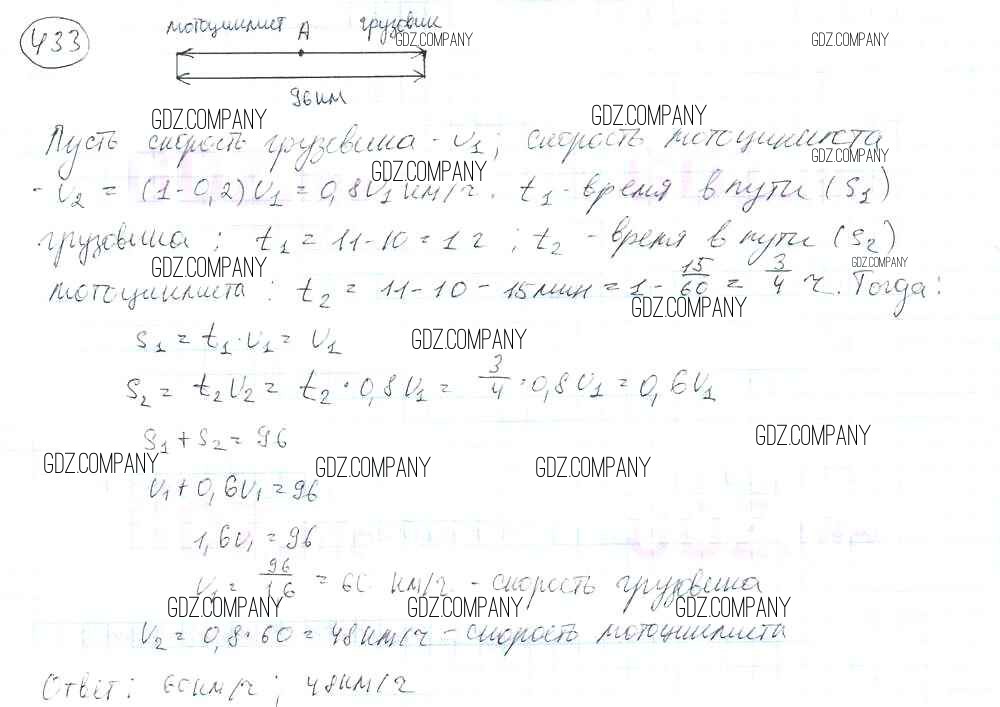 433
мотоциклист А грузовик
GDZ.COMPANY GDZ.COMPANY
96 км
GDZ.COMPANY GDZ.COMPANY
Пусть скорость грузовика - v₁; скорость мотоциклиста
GDZ.COMPANY GDZ.COMPANY
- v₂ = (1-0,2)v₁ = 0,8v₁ км/г. t₁ - время в пути (s₁)
грузовика; t₁ = 11-10 = 1 г; t₂ - время в пути (s₂)
GDZ.COMPANY GDZ.COMPANY
мотоциклиста: t₂ = 11-10-15мин = 1 - 15/60 = 3/4 ч. Тогда:
GDZ.COMPANY
s₁ = t₁·v₁ = v₁
GDZ.COMPANY
s₂ = t₂v₂ = t₂·0,8v₁ = 3/4·0,8v₁ = 0,6v₁
s₁ + s₂ = 96
GDZ.COMPANY
GDZ.COMPANY GDZ.COMPANY GDZ.COMPANY
v₁ + 0,6v₁ = 96
1,6v₁ = 96
v₁ = 96/1,6 = 60 км/г. - скорость грузовика
GDZ.COMPANY GDZ.COMPANY GDZ.COMPANY
v₂ = 0,8·60 = 48км/ч - скорость мотоциклиста
Ответ: 60км/г; 48км/г